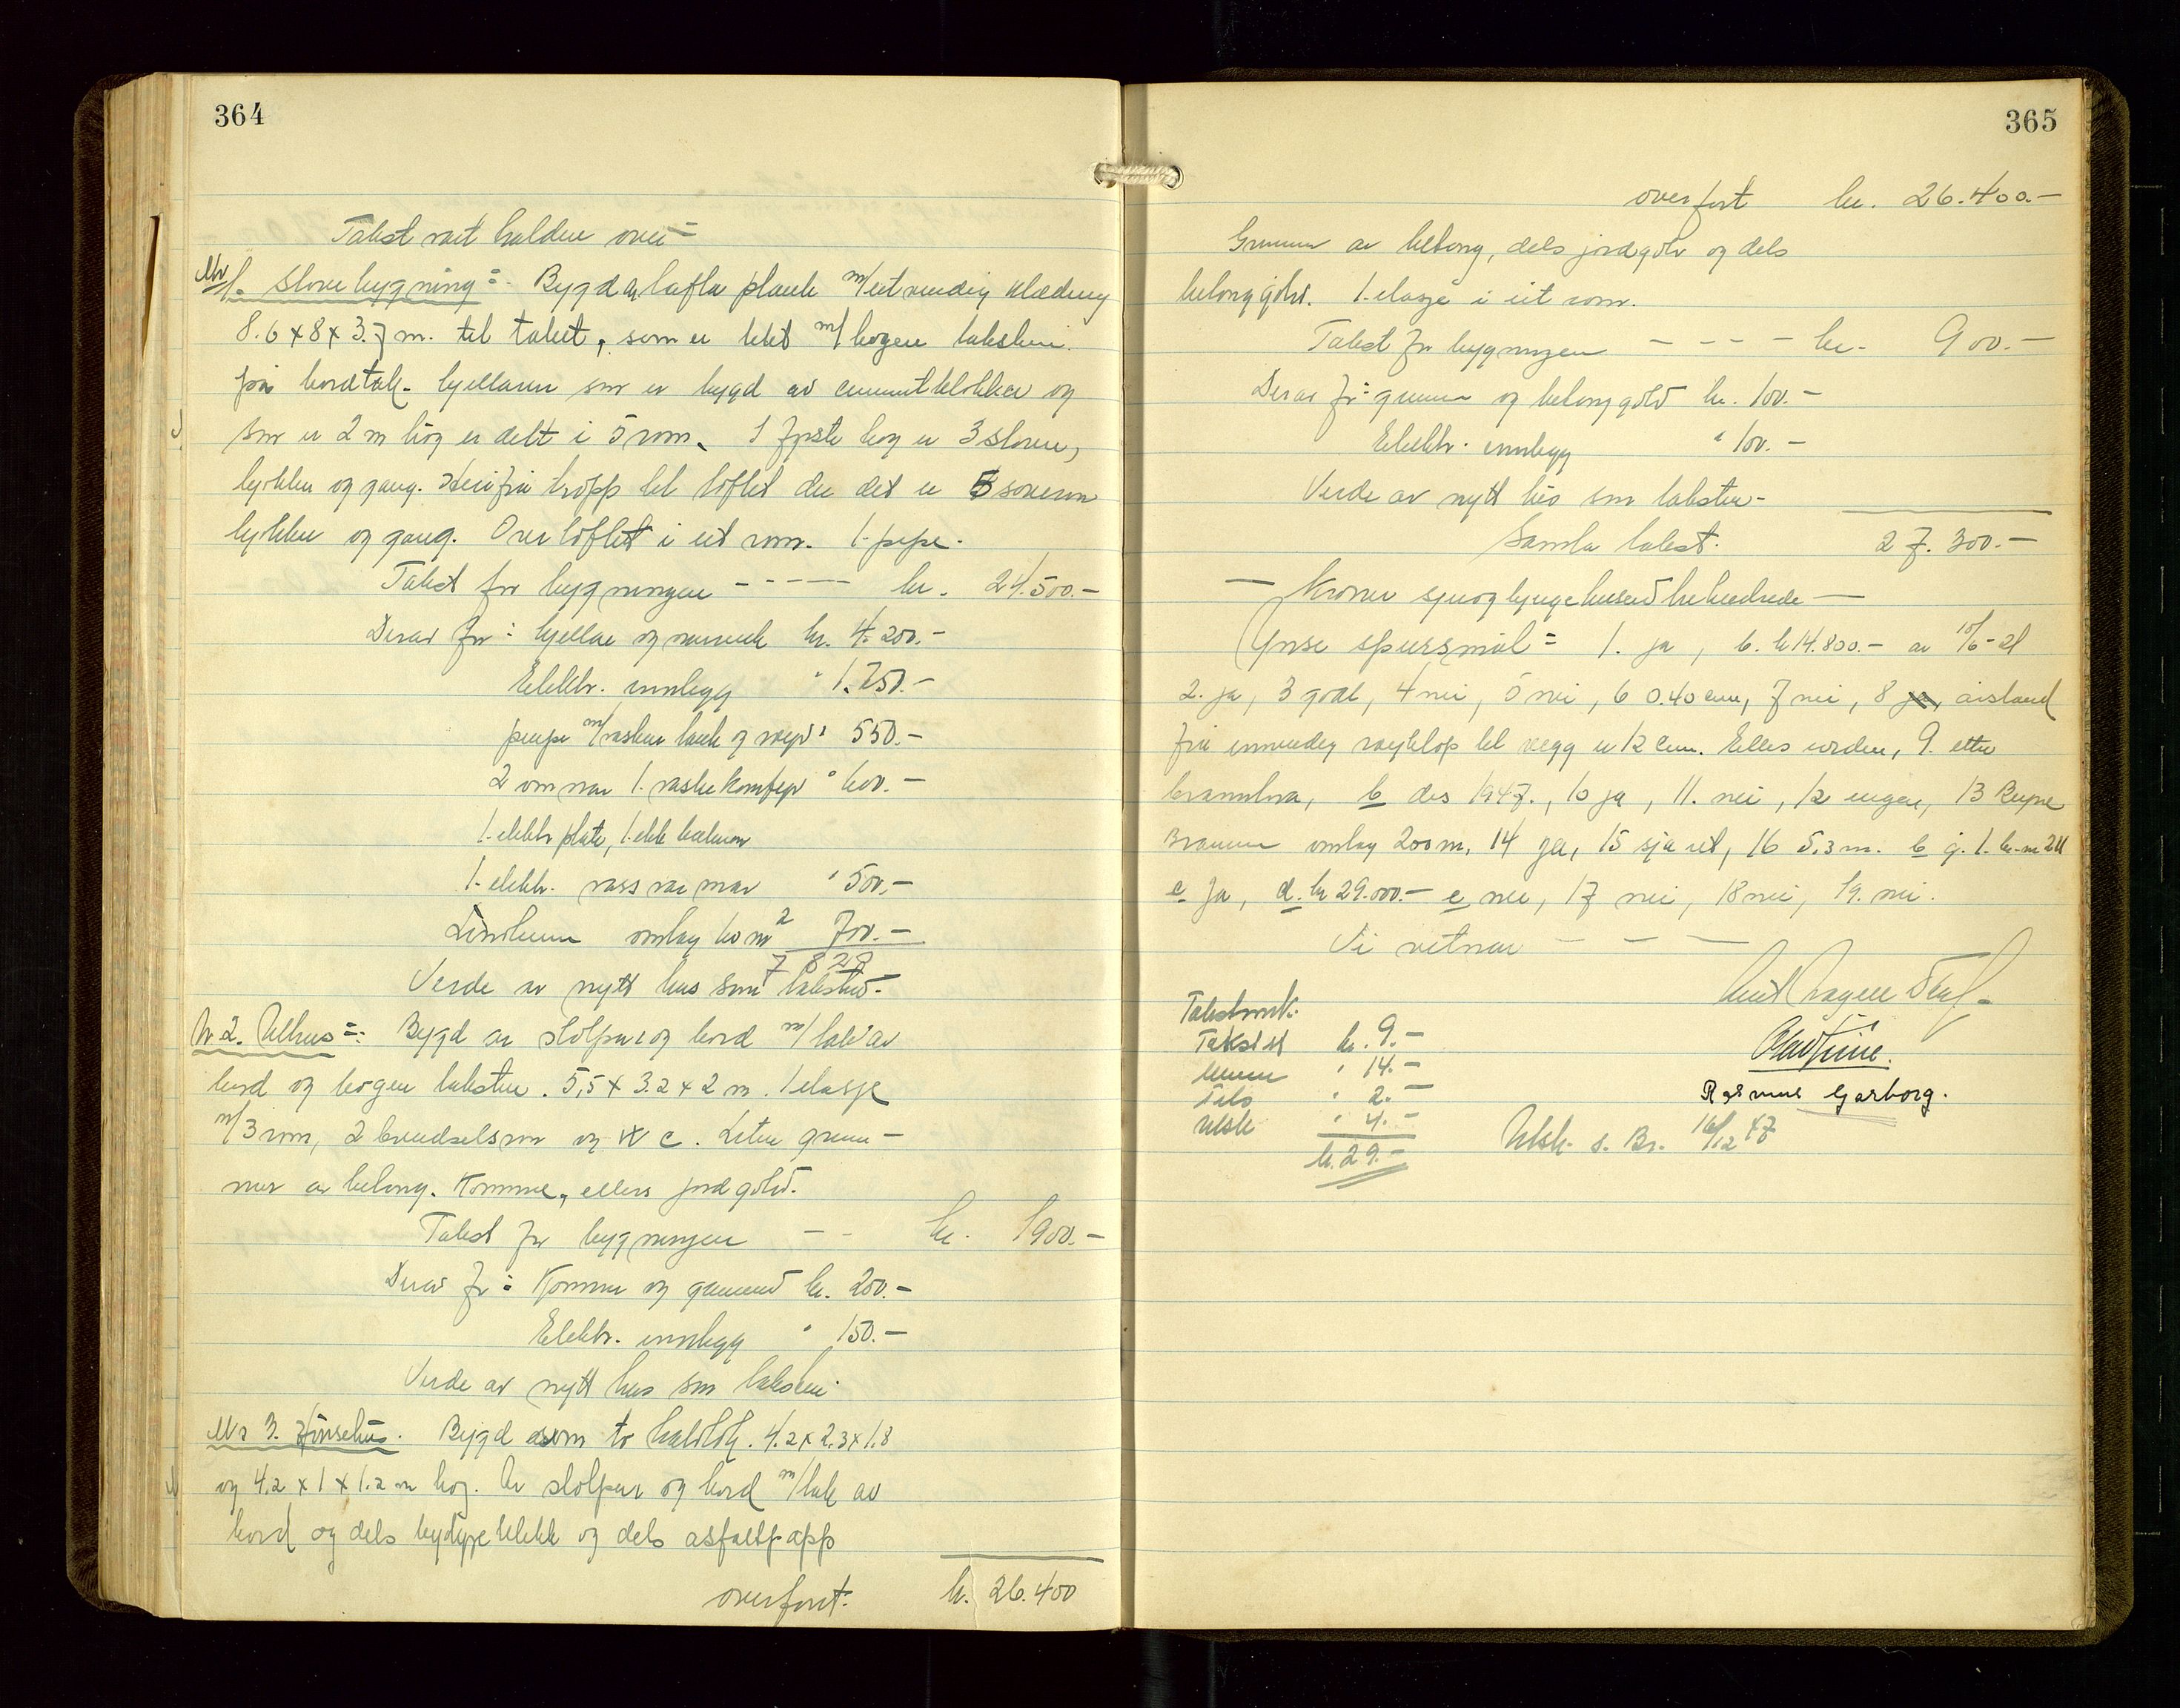 364
Takst vart halden over=
Nr 1. Stovebygning = Bygd av lafta plank m/utvendig klædning
8.6 x 8 x 3.7 m. til taket, som er tekt m/ hogen takstein
på bordtak. Kjellaren som er bygd av cementblokker og
som er 2 m høg er delt i 5 rom. I fyrste høg er 3 stover,
kjøkken og gang. Herifrå tropp til loftet der det er 3 soverom
kjøkken og gang. Over loftet i eit rom. 1. pipe.
Takst for bygningen - - - - - kr. 24.500.-
Derav for: kjellar og murverk kr. 4.200.-
Elektr. innlegg " 1.250.-
pipe m/vaskar tank og røyr " 550.-
2 omnar 1. vaskekomfyr " 600.-
1. elektr plate, 1. elek
1. elektr. vassvarmar " 500.-
Linoleum omlag 60 m² 700.-
7 828
Verde av nytt hus som taksten.
Nr 2. Uthus =: Bygd av stolpar og bord m/ tak av
bord og hogen takstein. 5,5 x 3.2 x 2 m. 1 etasje
m/3 rom, 2 brendselsrom og W c. Liten grunn-
mur av betong. Komme, ellers jordgolv.
Takst for bygningen - - kr. 1900.-
Derav for: Komme og grunnmur kr. 200.-
Elektr. innlegg " 150.-
Verde av nytt hus som taksten
Nr 3. Hønsehus. Bygd som to halvtak. 4.2 x 2.3 x 1.8
og 4,2 x 1 x 1.2 m høg. Av stolpar og bord m/tak av
bord og dels blekk og dels asfaltpapp
overført. kr. 26.400
365
overført kr. 26.400.-
Grunnmur av betong, dels jordgolv og dels
betonggolv. 1. etasje i eit rom.
Takst for bygningen - - - - kr. 900.-
Derav for: grunnmur og betonggolv kr. 100.-
Elektr. innlegg " 100.-
Verde av nytt hus som taksten-
Samla takst. 27.300.-
- Kroner sjuogtjugetusen trihundrede -
Ymse spursmål = 1. ja, b. kr 14.800.- av 10/6-21
2. ja, 3 godt, 4 nei, 5 nei, 6 0.40 cm, 7 nei, 8 avstand
frå innvendig røykløp til vegg er 12 cm. Elles iorden, 9. etter
brannlova, b des 1947., 10 ja, 11. nei, 12 ingen, 13
Bryne omlag 200 m, 14 ja, 15 sjå ut, 16 5,3 m. b g. 1. br.-nr 211
c ja, d. kr 29.000.- e nei, 17 nei, 18 nei, 19. nei.
Vi vitnar - - -
Takstmk.
Takstet kr. 9.-
" 14.-
" 2.-
Utsk " 4.-
kr. 29.-
Rasmus Garborg.
Utsk. s. Br. 16/12 47